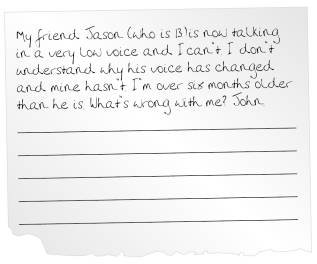 My friend Jason (who is 13) is now talking
in a very low voice and I can't. I don't
understand why his voice has changed
and mine hasn't I'm over six months older
than he is. What's wrong with me? John